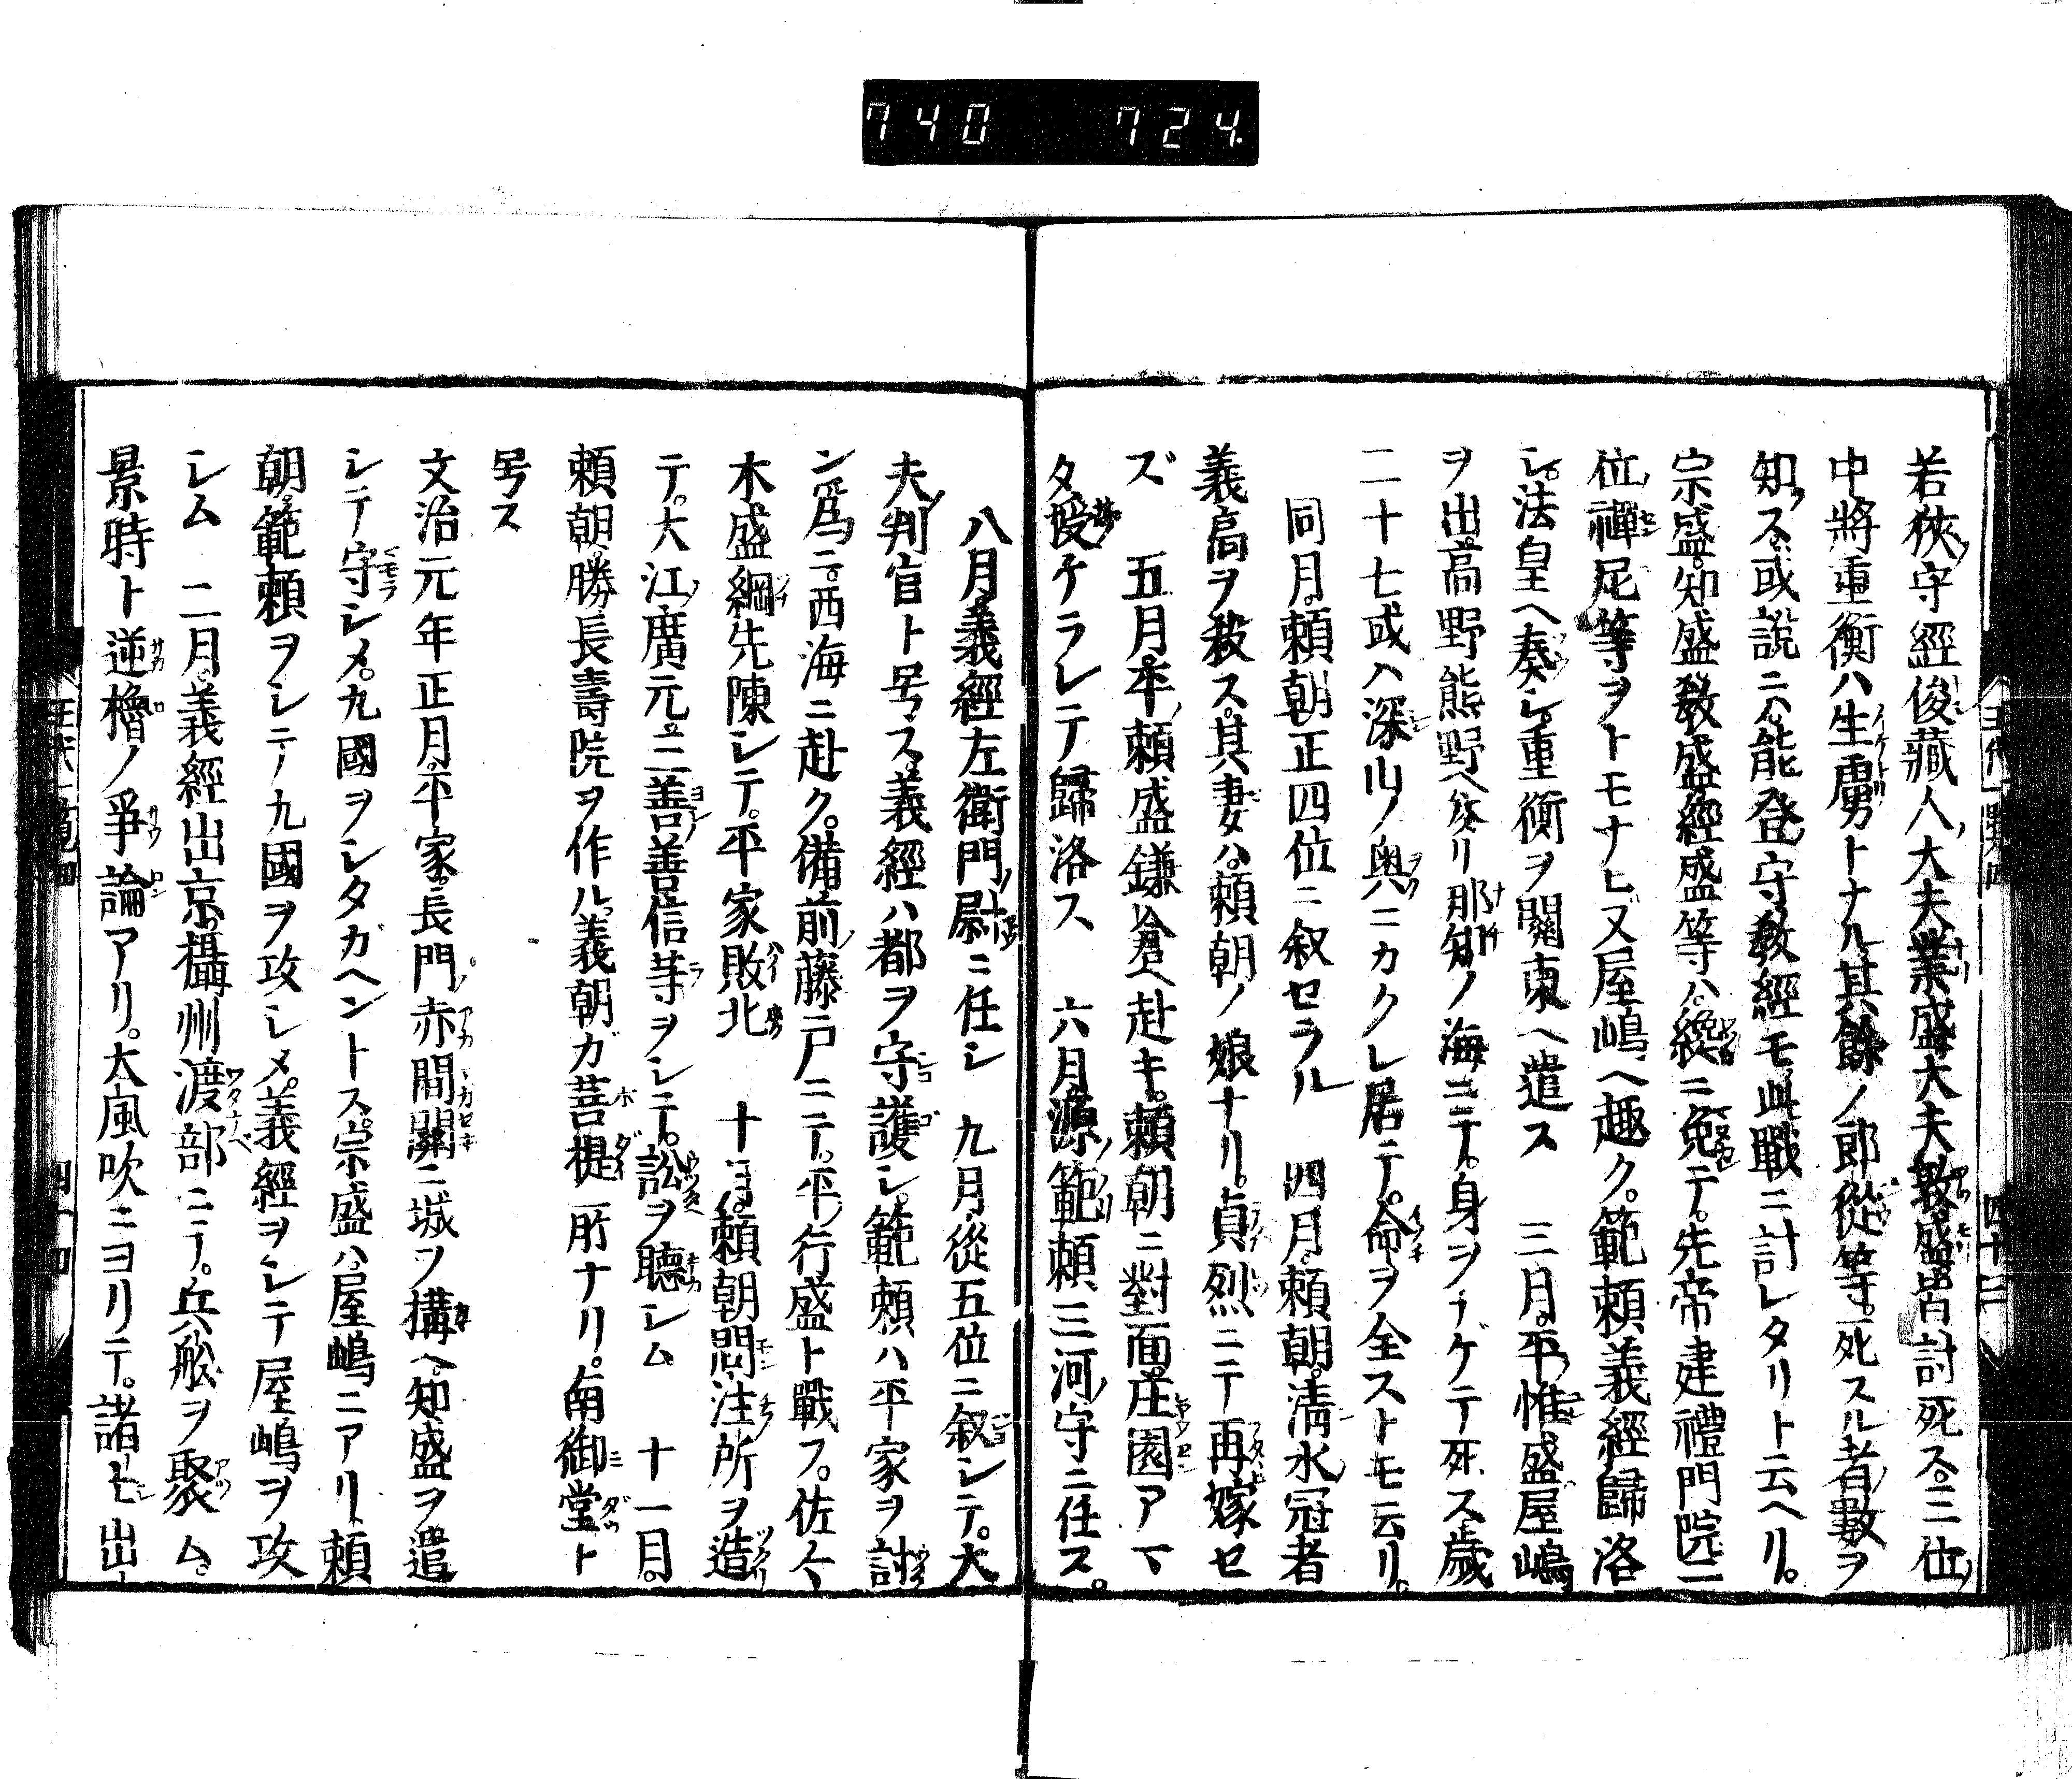 740 724
若狹守經俊藏人大夫業盛大夫敦盛皆討死ス。三位
中將重衡ハ生虜トナル其餘ノ郎從等。死スル者數ヲ
知ス。或說ニハ能登守敎經モ此戰ニ討レタリト云ヘリ。
宗盛。知盛敎盛經盛等ハ。纔ニ免テ。先帝建禮門院二
位禪尼等ヲトモナヒ又屋嶋ヘ趣ク。範頼義經歸洛
シ。法皇ヘ奏シ。重衡ヲ關東ヘ遣ス 三月。平惟盛屋嶋
ヲ出。高野熊野ヘ參リ那知ノ海ニテ。身ヲナゲテ死ス歲
二十七或ハ深山ノ奧ニカクレ居テ。命ヲ全ストモ云リ。
同月。頼朝正四位ニ叙セラル 四月。頼朝。淸水冠者
義高ヲ殺ス。其妻ハ。頼朝ノ娘ナリ。貞烈ニテ再嫁セ
ズ 五月。平頼盛鎌倉ヘ赴キ。頼朝ニ對面。庄園アマ
タ授ケラレテ歸洛ス 六月源範頼三河守ニ任ス。
八月。義經左衛門尉ニ任シ 九月。從五位ニ叙シテ。大
夫判官ト号ス。義經ハ都ヲ守護シ。範頼ハ平家ヲ討
ン爲ニ。西海ニ赴ク。備前藤戸ニテ。平行盛ト戰フ。佐々
木盛綱先陳シテ。平家敗北 十月。頼朝問注所ヲ造
テ。大江廣元。三善善信等ヲシテ。訟ヲ聽シム 十一月。
頼朝。勝長壽院ヲ作ル。義朝ガ菩提所ナリ。南御堂ト
号ス
文治元年正月。平家。長門赤間關ニ城ヲ構ヘ。知盛ヲ遣
シテ守シメ。九國ヲシタガヘントス。宗盛ハ。屋嶋ニアリ。頼
朝。範頼ヲシテ九國ヲ攻シメ。義經ヲシテ屋嶋ヲ攻
シム 二月。義經出京。攝州渡部ニテ。兵舩ヲ聚ム。
景時ト逆櫓ノ爭論アリ。大風吹ニヨリテ。諸